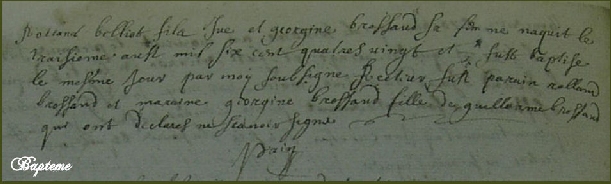 Rolland belliot fils Jue et giorgine brossaud sa femme naquit le
traisieme aust mil six cent quatres vingt et fust baptise
le mesme Jour par moy soubsigne Recteur fust parain rolland
brossaud et maraine giorgine brossaud fille de guillaume brossaud
qui ont declares ne scavoir signe
Bapteme